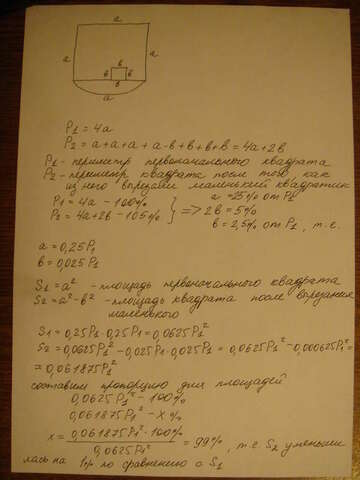 a
a
a
в
в
в
в
a
P₁ = 4a
P₂ = a+a+a+a-в+в+в+в = 4a+2в
P₁ - периметр первоначального квадрата
P₂ - периметр квадрата после того как
из него вырезали маленький квадратик
P₁ = 4a - 100%
P₂ = 4a+2в - 105%
} => 2в = 5%
a = 25% от P₁
в = 2,5% от P₁, т.е.
a = 0,25P₁
в = 0,025P₁
S₁ = a² - площадь первоначального квадрата
S₂ = a² - в² - площадь квадрата после вырезания
маленького
S₁ = 0,25P₁·0,25P₁ = 0,0625P₁²
S₂ = 0,0625P₁² - 0,025P₁·0,025P₁ = 0,0625P₁² - 0,000625P₁² =
= 0,061875P₁²
составим пропорцию для площадей
0,0625P₁² - 100%
0,061875P₁² - x%
x = 0,061875P₁²·100% / 0,0625P₁² = 99%, т.е. S₂ уменьши
лась на 1% по сравнению с S₁